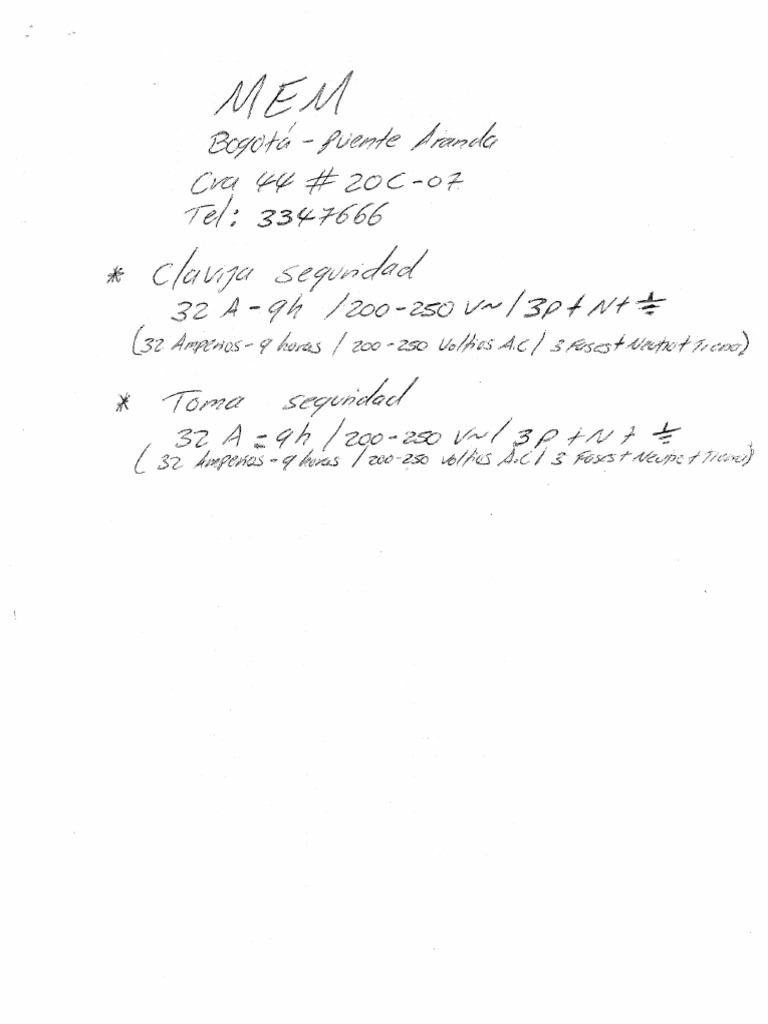 MEM
Bogotá - puente Aranda
Cra 44 # 20C-07
Tel: 3347666
* Clavija seguridad
32 A - 9h / 200-250 V~ / 3P + N + ⏚
(32 Amperios - 9 horas / 200-250 Voltios A.C / 3 Fases + Neutro + Tierra)
* Toma seguridad
32 A = 9h / 200-250 V~ / 3P + N + ⏚
(32 Amperios - 9 horas / 200-250 voltios A.C / 3 Fases + Neutro + Tierra)